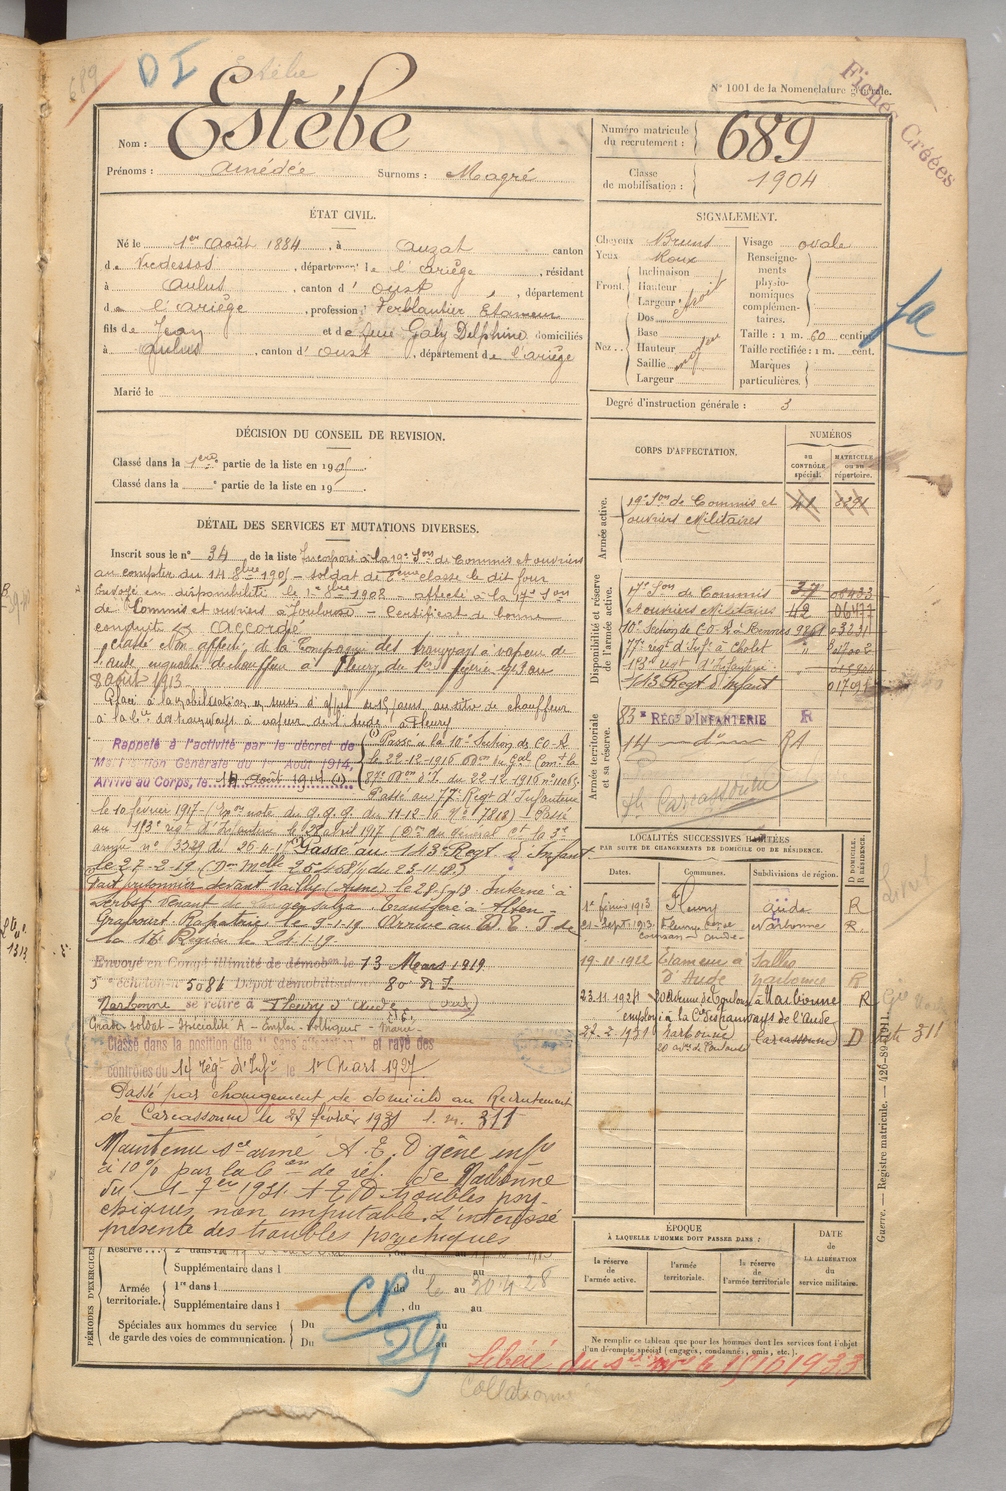 689
DI
Estèbe
N° 1001 de la Nomenclature générale.
Fiches Créées
Nom : Estèbe
Prénoms : Amédée Surnoms : Magré
Numéro matricule du recrutement : 689
Classe de mobilisation : 1904
ÉTAT CIVIL.
Né le 1er Août 1884, à Auzat canton
de Vicdessos, département de l'Ariège, résidant
à Aulus, canton d' Oust, département
de l'Ariège, profession Ferblantier Étameur
fils de Jean et de feue Galy Delphine domiciliés
à Aulus, canton d' Oust, département de l'Ariège
Marié le
SIGNALEMENT.
Cheveux Bruns
Yeux Roux
Front. Inclinaison
Hauteur
Largeur étroit
Nez. Dos
Base
Hauteur moyen
Saillie
Largeur
Visage ovale
Renseignements physionomiques complémentaires.
Taille : 1 m. 60 centim.
Taille rectifiée : 1 m. cent.
Marques particulières.
Degré d'instruction générale : 3
DÉCISION DU CONSEIL DE REVISION.
Classé dans la 1ère partie de la liste en 1905
Classé dans la partie de la liste en 19
DÉTAIL DES SERVICES ET MUTATIONS DIVERSES.
Inscrit sous le n° 34 de la liste Incorporé à la 19e Son de Commis et ouvriers
au compter du 14 8bre 1905 - soldat de 2ème classe le dit jour
Envoyé en disponibilité le
1908 - affecté à la 17e Son
de Commis et ouvriers à Toulouse - Certificat de bonne
conduite Accordé
Classé non affecté de la Compagnie des tramways à vapeur de
l'Aude en qualité de chauffeur à Fleury, du 1er février 1913 au
8 août 1913
Placé à la mobilisation en sursis d'appel de 45 jours, au titre de chauffeur
à la Cie des tramways à vapeur de l'Aude à Fleury
Rappelé à l'activité par le décret de
Mobilisation Générale du 1er Août 1914,
Arrivé au Corps, le Août 1914 (1)
(1) Passé à la 10e Section de C.O.A.
le 22-12-1916
du 22-12-1916
Passé au 77e Régt d'Infanterie
le 10 février 1917
note du G.Q.G. du 11-12-16 N° 7818) - Passé
au 113e régt d'Infanterie le 28 avril 1917 (Don du général Ct la 3e
armée n° 3329 du 26-4-17 Passé au 143e Régt d'Infant
le 27-2-19
du 23-11-18)
Fait prisonnier devant Vailly (Aisne) le 28-5-18. Interné à
Zerbst venant de Langensalza. Transféré à Alten-
Grabow. Rapatrié le 9-1-19. Arrivé au D. E. I de
la 16e Région le 24-1-19.
Envoyé en Congé illimité de démobon le 13 Mars 1919
5e échelon n° 5081 Dépôt démobilisateur 80e R.I.
Narbonne se retire à Fleury d'Aude (Aude)
Grade soldat - Spécialité A - Emploi Voltigeur - Marié
Classé dans la position dite "Sans affectation" et rayé des
contrôles du 14 régt d'Infie le 1er Mars 1927
Passé par changement de domicile au Recrutement
de Carcassonne le 27 février 1931 l. m. 311
Maintenu sce armé A. E. D gêne infre
à 10% par la Con de réf. de Narbonne
du
1931. A E D troubles psy-
chiques, non imputable. L'intéressé
présente des troubles psychiques
CORPS D'AFFECTATION.
NUMÉROS
au CONTRÔLE spécial.
MATRICULE ou au répertoire.
Armée active.
19e Son de Commis et 41 2291
ouvriers Militaires
Disponibilité et réserve de l'armée active.
17e Son de Commis 37
et ouvriers Militaires 42 06477
10e Section de C-O-A à Rennes 9861 03211
77e régt d'Infie à Cholet
113e régt d'Infanterie
143 Régt d'Infant
Armée territoriale et sa réserve.
83e RÉGt D'INFANTERIE R
14 do RA
Carcassonne
LOCALITÉS SUCCESSIVES HABITÉES
PAR SUITE DE CHANGEMENTS DE DOMICILE OU DE RÉSIDENCE.
Dates. Communes. Subdivisions de région. D. DOMICILE. R. RÉSIDENCE.
1er février 1913 Fleury Aude R
21-Sept-1913 Fleury
Narbonne R.
Coursan Aude
19-11-1922 Étameur à Salles
d'Aude Narbonne R
23.11.1924 20 Avenue de Toulouse à Narbonne R
employé à la Cie des tramways de l'Aude
27-2-1931 Narbonne Carcassonne D
20 Ave de Toulouse
311
Guerre. — Registre matricule. — 426-89-1911.
ÉPOQUE
À LAQUELLE L'HOMME DOIT PASSER DANS :
la réserve de l'armée active.
l'armée territoriale.
la réserve de l'armée territoriale
DATE de LA LIBÉRATION du service militaire.
Ne remplir ce tableau que pour les hommes dont les services font l'objet
d'un décompte spécial (engagés, condamnés, omis, etc.).
PÉRIODES D'EXERCICES
Réserve...
Supplémentaire dans l du au
Armée territoriale.
1re dans l du le au 30.4.28
Supplémentaire dans l , du au
Spéciales aux hommes du service
de garde des voies de communication.
Du au
Du au
CP
29
Libéré du sce mre le 15101933
Collationné